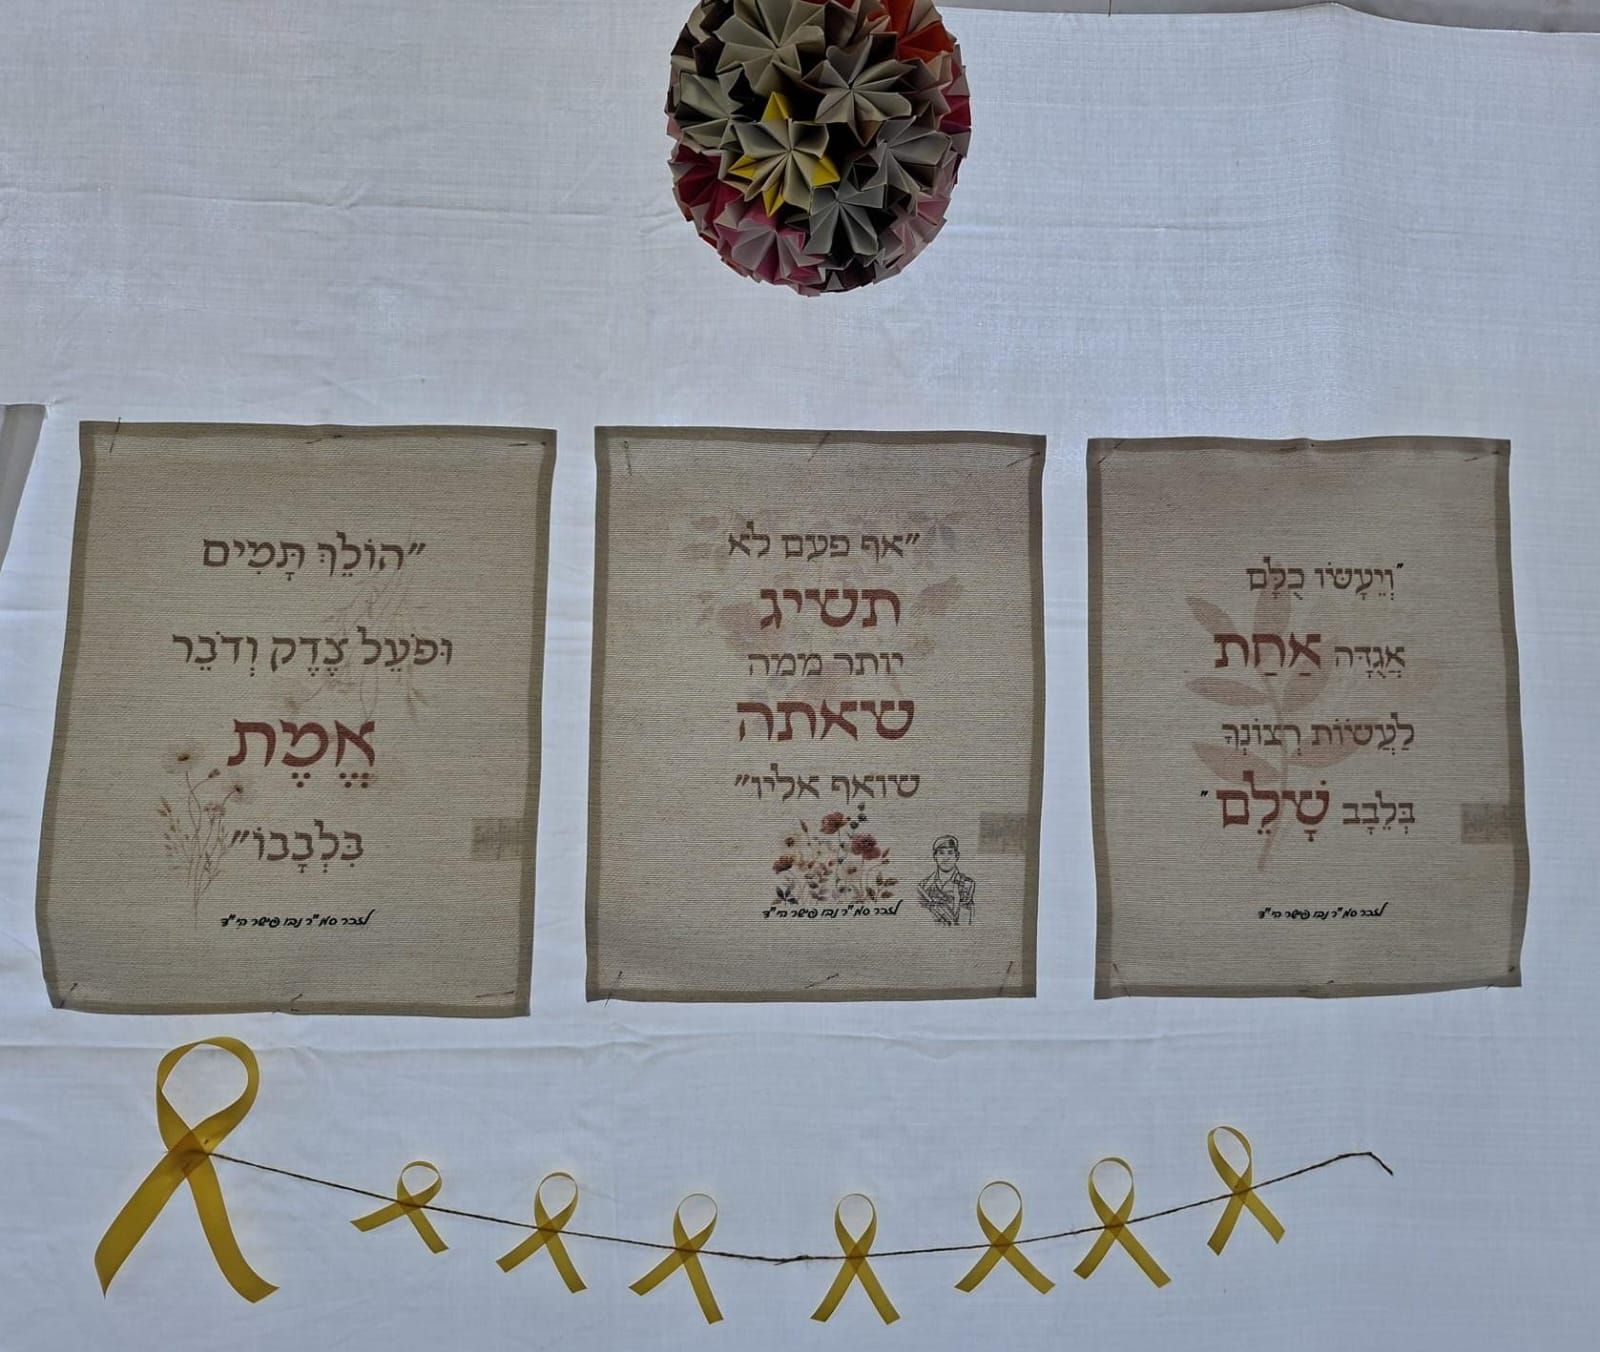 "הוֹלֵךְ תָּמִים
וּפֹעֵל צֶדֶק וְדֹבֵר
אֱמֶת
בִּלְבָבוֹ"
לזכר סמ"ר נבו פישר הי"ד
"אף פעם לא
תשיג
יותר ממה
שאתה
שואף אליו"
לזכר סמ"ר נבו פישר הי"ד
"וְיֵעָשׂוּ כֻלָּם
אֲגֻדָּה אַחַת
לַעֲשׂוֹת רְצוֹנְךָ
בְּלֵבָב שָׁלֵם"
לזכר סמ"ר נבו פישר הי"ד